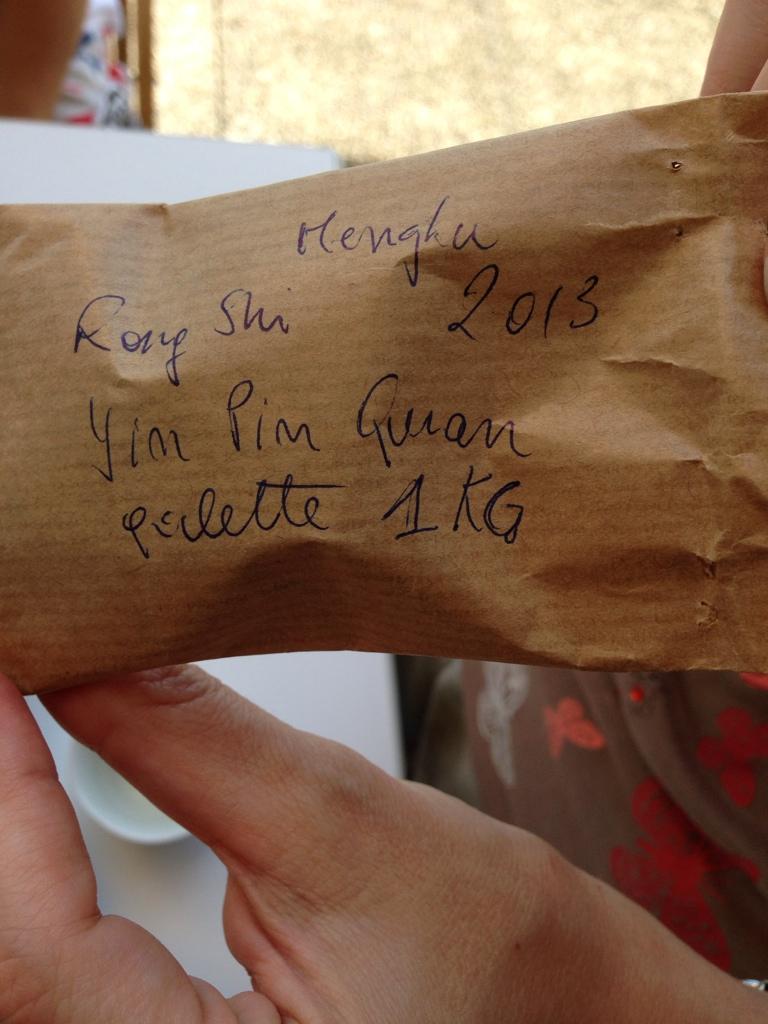 Mengku
Rong Shi 2013
Yin Pin Quan
galette 1KG